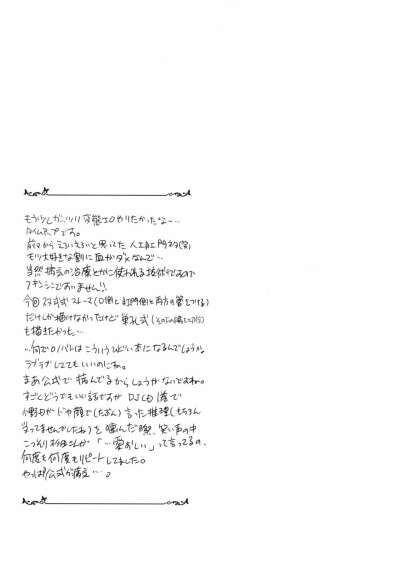 もう少しガッツリ変態エロやりたかったなー…
タイムアップです。
前々からエロいえろいと思ってた人工肛門ネタ(笑)
モツ大好きな割に血がダメなんで…
当然病気の治療とかに使われる技術ですので
フキンシンでおいません!!
今回 ストーマ(口側と肛門側と両方の管をつなげる)
だけしか描けなかったけど単孔式
も描きたかった…
…何でロノバトはこういうひどい本になるんでしょうか
ラブラブしててもいいのにね。
まあ公式で病んでるからしょうがないですよね。
すごくどうでもいい話ですが DJCD 渚で
小野Dがドヤ顔で(たぶん)言った推理(もちろん
当ってませんでしたね)を噛んだ際、笑い声の中
こっそり杉田さんが「…愛おしい」って言ってるの、
何度も何度もリピートしてました。
やっぱ公式が病気…。